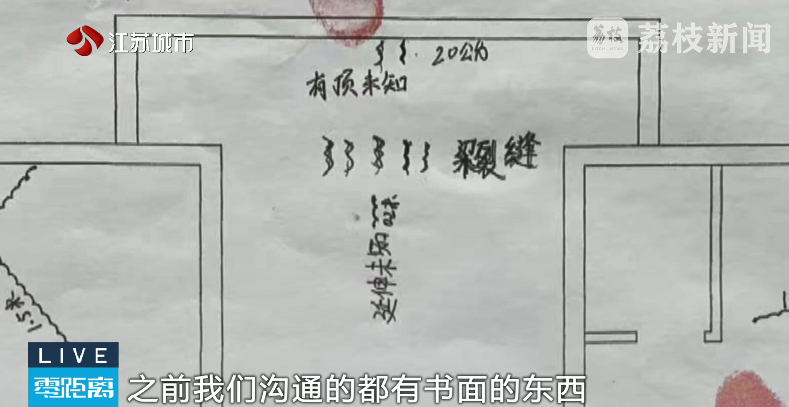 江苏城市
荔枝
荔枝新闻
20公分
有顶未知
梁裂缝
延伸未知
1.5米
LIVE
零距离
之前我们沟通的都有书面的东西